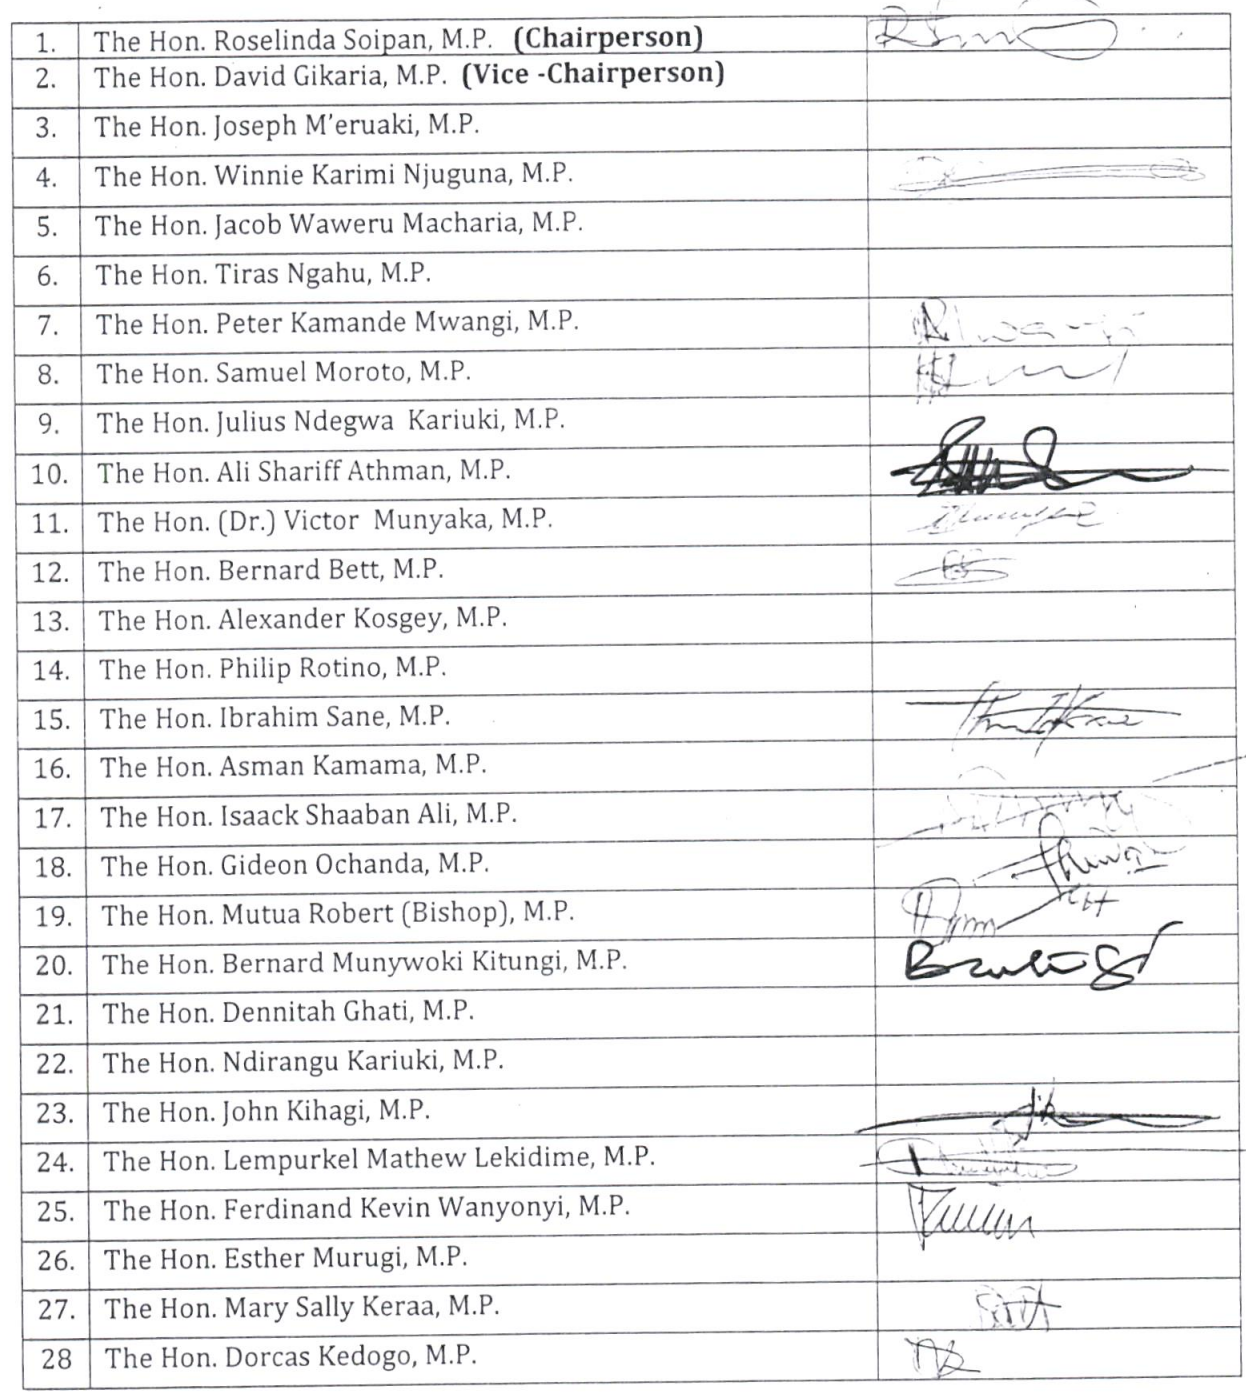 1. The Hon. Roselinda Soipan, M.P. (Chairperson)
2. The Hon. David Gikaria, M.P. (Vice -Chairperson)
3. The Hon. Joseph M'eruaki, M.P.
4. The Hon. Winnie Karimi Njuguna, M.P.
5. The Hon. Jacob Waweru Macharia, M.P.
6. The Hon. Tiras Ngahu, M.P.
7. The Hon. Peter Kamande Mwangi, M.P.
8. The Hon. Samuel Moroto, M.P.
9. The Hon. Julius Ndegwa Kariuki, M.P.
10. The Hon. Ali Shariff Athman, M.P.
11. The Hon. (Dr.) Victor Munyaka, M.P.
12. The Hon. Bernard Bett, M.P.
13. The Hon. Alexander Kosgey, M.P.
14. The Hon. Philip Rotino, M.P.
15. The Hon. Ibrahim Sane, M.P.
16. The Hon. Asman Kamama, M.P.
17. The Hon. Isaack Shaaban Ali, M.P.
18. The Hon. Gideon Ochanda, M.P.
19. The Hon. Mutua Robert (Bishop), M.P.
20. The Hon. Bernard Munywoki Kitungi, M.P.
21. The Hon. Dennitah Ghati, M.P.
22. The Hon. Ndirangu Kariuki, M.P.
23. The Hon. John Kihagi, M.P.
24. The Hon. Lempurkel Mathew Lekidime, M.P.
25. The Hon. Ferdinand Kevin Wanyonyi, M.P.
26. The Hon. Esther Murugi, M.P.
27. The Hon. Mary Sally Keraa, M.P.
28 The Hon. Dorcas Kedogo, M.P.